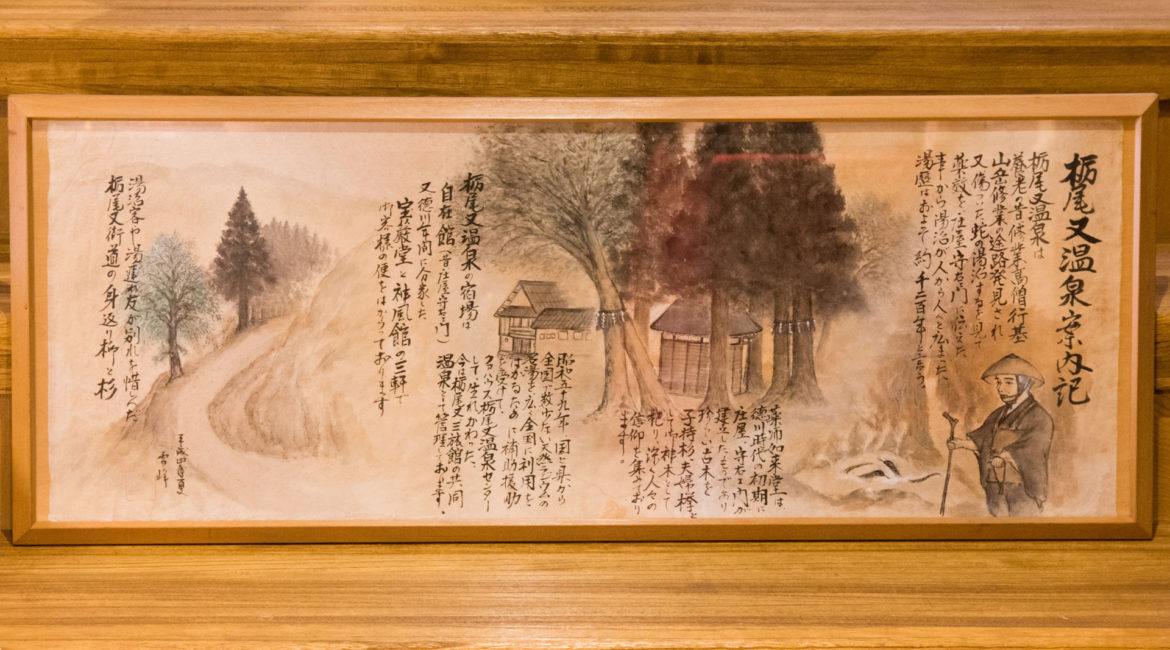 栃尾又温泉案内記
栃尾又温泉は
養老の昔 修業高僧行基
山岳修業の途路発見され
又傷つた蛇の湯治するを見て
薬効を庄屋守右門に伝えた
事から湯治が人から人と広まつた、
湯歴はおよそ約一千二百年と言う、
薬師如来堂は
徳川時代の初期に
庄屋守右エ門が
建立したものであり
珍しい古木を
子持杉、夫婦欅と
して御神木として
祀り深く人々の
信仰を集めており
ます。
栃尾又温泉の宿場は
自在館(昔庄屋守右門)
又徳川年間に分家した
宝巌堂と神風館の三軒で
お客様の便をはからつております
昭和五十九年 国と県から
全国で数少ない天然ラジウムの
名湯を広く全国に利用を
はかるために補助援助
を受けて、
クアハウス栃尾又温泉センターと
して生れかわつた、
今は栃尾又三旅館の共同
温泉として管理しております。
湯治客や湯連れ友が別れを惜んだ
栃尾又街道の見返り柳と杉